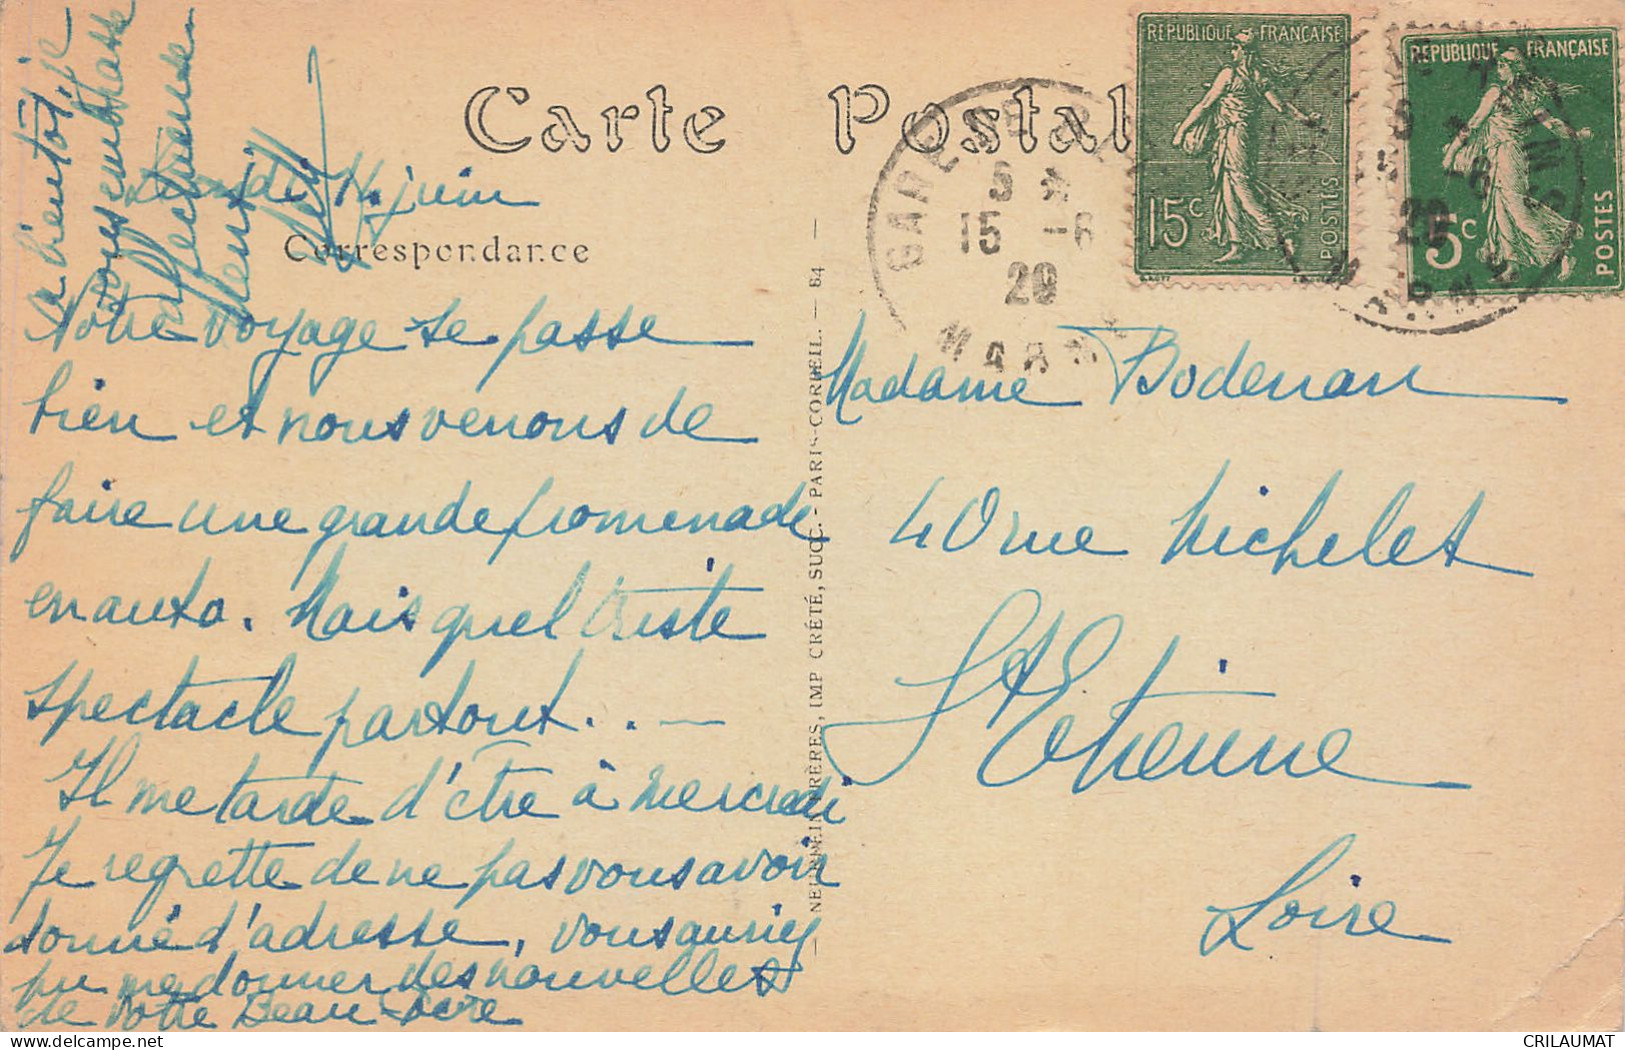 Carte Postale
Correspondance
REPUBLIQUE FRANÇAISE
15c
POSTES
REPUBLIQUE FRANÇAISE
5c
POSTES
GARE DE REIMS
15 -6
20
MARNE
Lundi 14 juin
Notre voyage se passe
bien et nous venons de
faire une grande promenade
en auto. Mais quel triste
spectacle partout...
Il me tarde d'être à Mercredi
Je regrette de ne pas vous avoir
donné d'adresse, vous auriez
pu me donner des nouvelles
de votre Beau-Père
a bientot, je
vous embrasse
affectueusement
NEURDEIN FRÈRES, IMP CRÉTÉ, SUCC. - PARIS-CORBEIL. - 64
Madame Bodenan
40 rue Michelet
St Etienne
Loire
CRILAUMAT